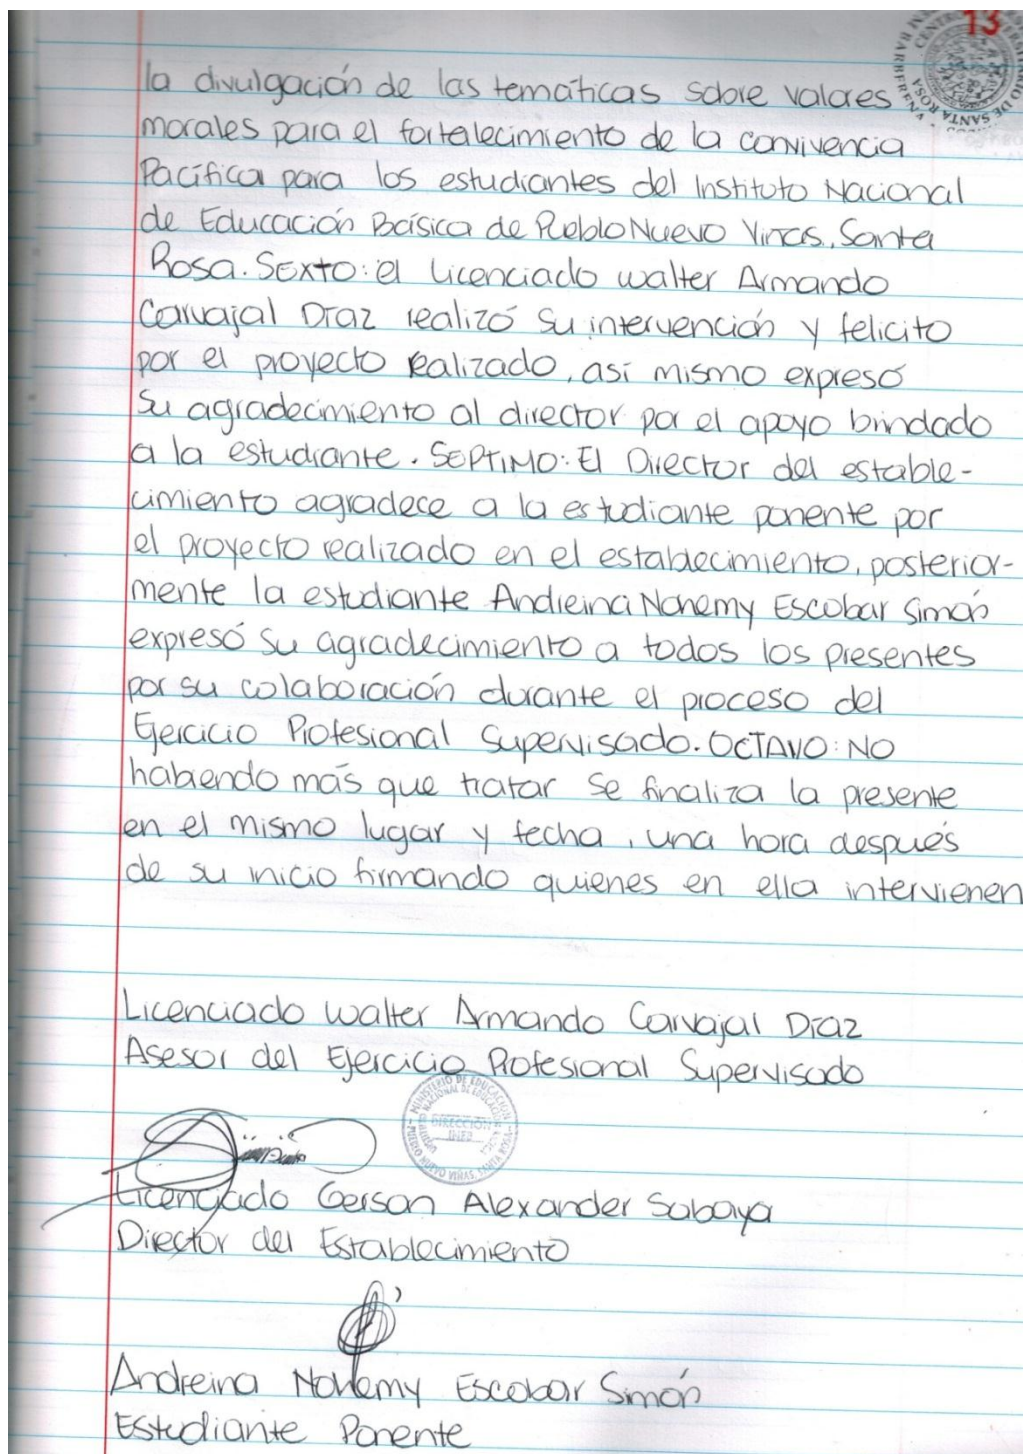 13
la divulgación de las temáticas sobre valores
morales para el fortalecimiento de la convivencia
Pacífica para los estudiantes del Instituto Nacional
de Educación Básica de Pueblo Nuevo Viñas, Santa
Rosa. SEXTO: el Licenciado Walter Armando
Carvajal Díaz realizó su intervención y felicito
por el proyecto realizado, así mismo expresó
su agradecimiento al director por el apoyo brindado
a la estudiante. SEPTIMO: El Director del estable-
cimiento agradece a la estudiante ponente por
el proyecto realizado en el establecimiento, posterior-
mente la estudiante Andreina Nohemy Escobar Simón
expresó su agradecimiento a todos los presentes
por su colaboración durante el proceso del
Ejercicio Profesional Supervisado. OCTAVO: NO
habiendo más que tratar se finaliza la presente
en el mismo lugar y fecha, una hora después
de su inicio firmando quienes en ella intervienen
Licenciado Walter Armando Carvajal Díaz
Asesor del Ejercicio Profesional Supervisado
MINISTERIO DE EDUCACION
DIRECCIÓN
INEB
PUEBLO NUEVO VIÑAS, SANTA ROSA
Licenciado Gerson Alexander Sabaya
Director del Establecimiento
Andreina Nohemy Escobar Simón
Estudiante Ponente